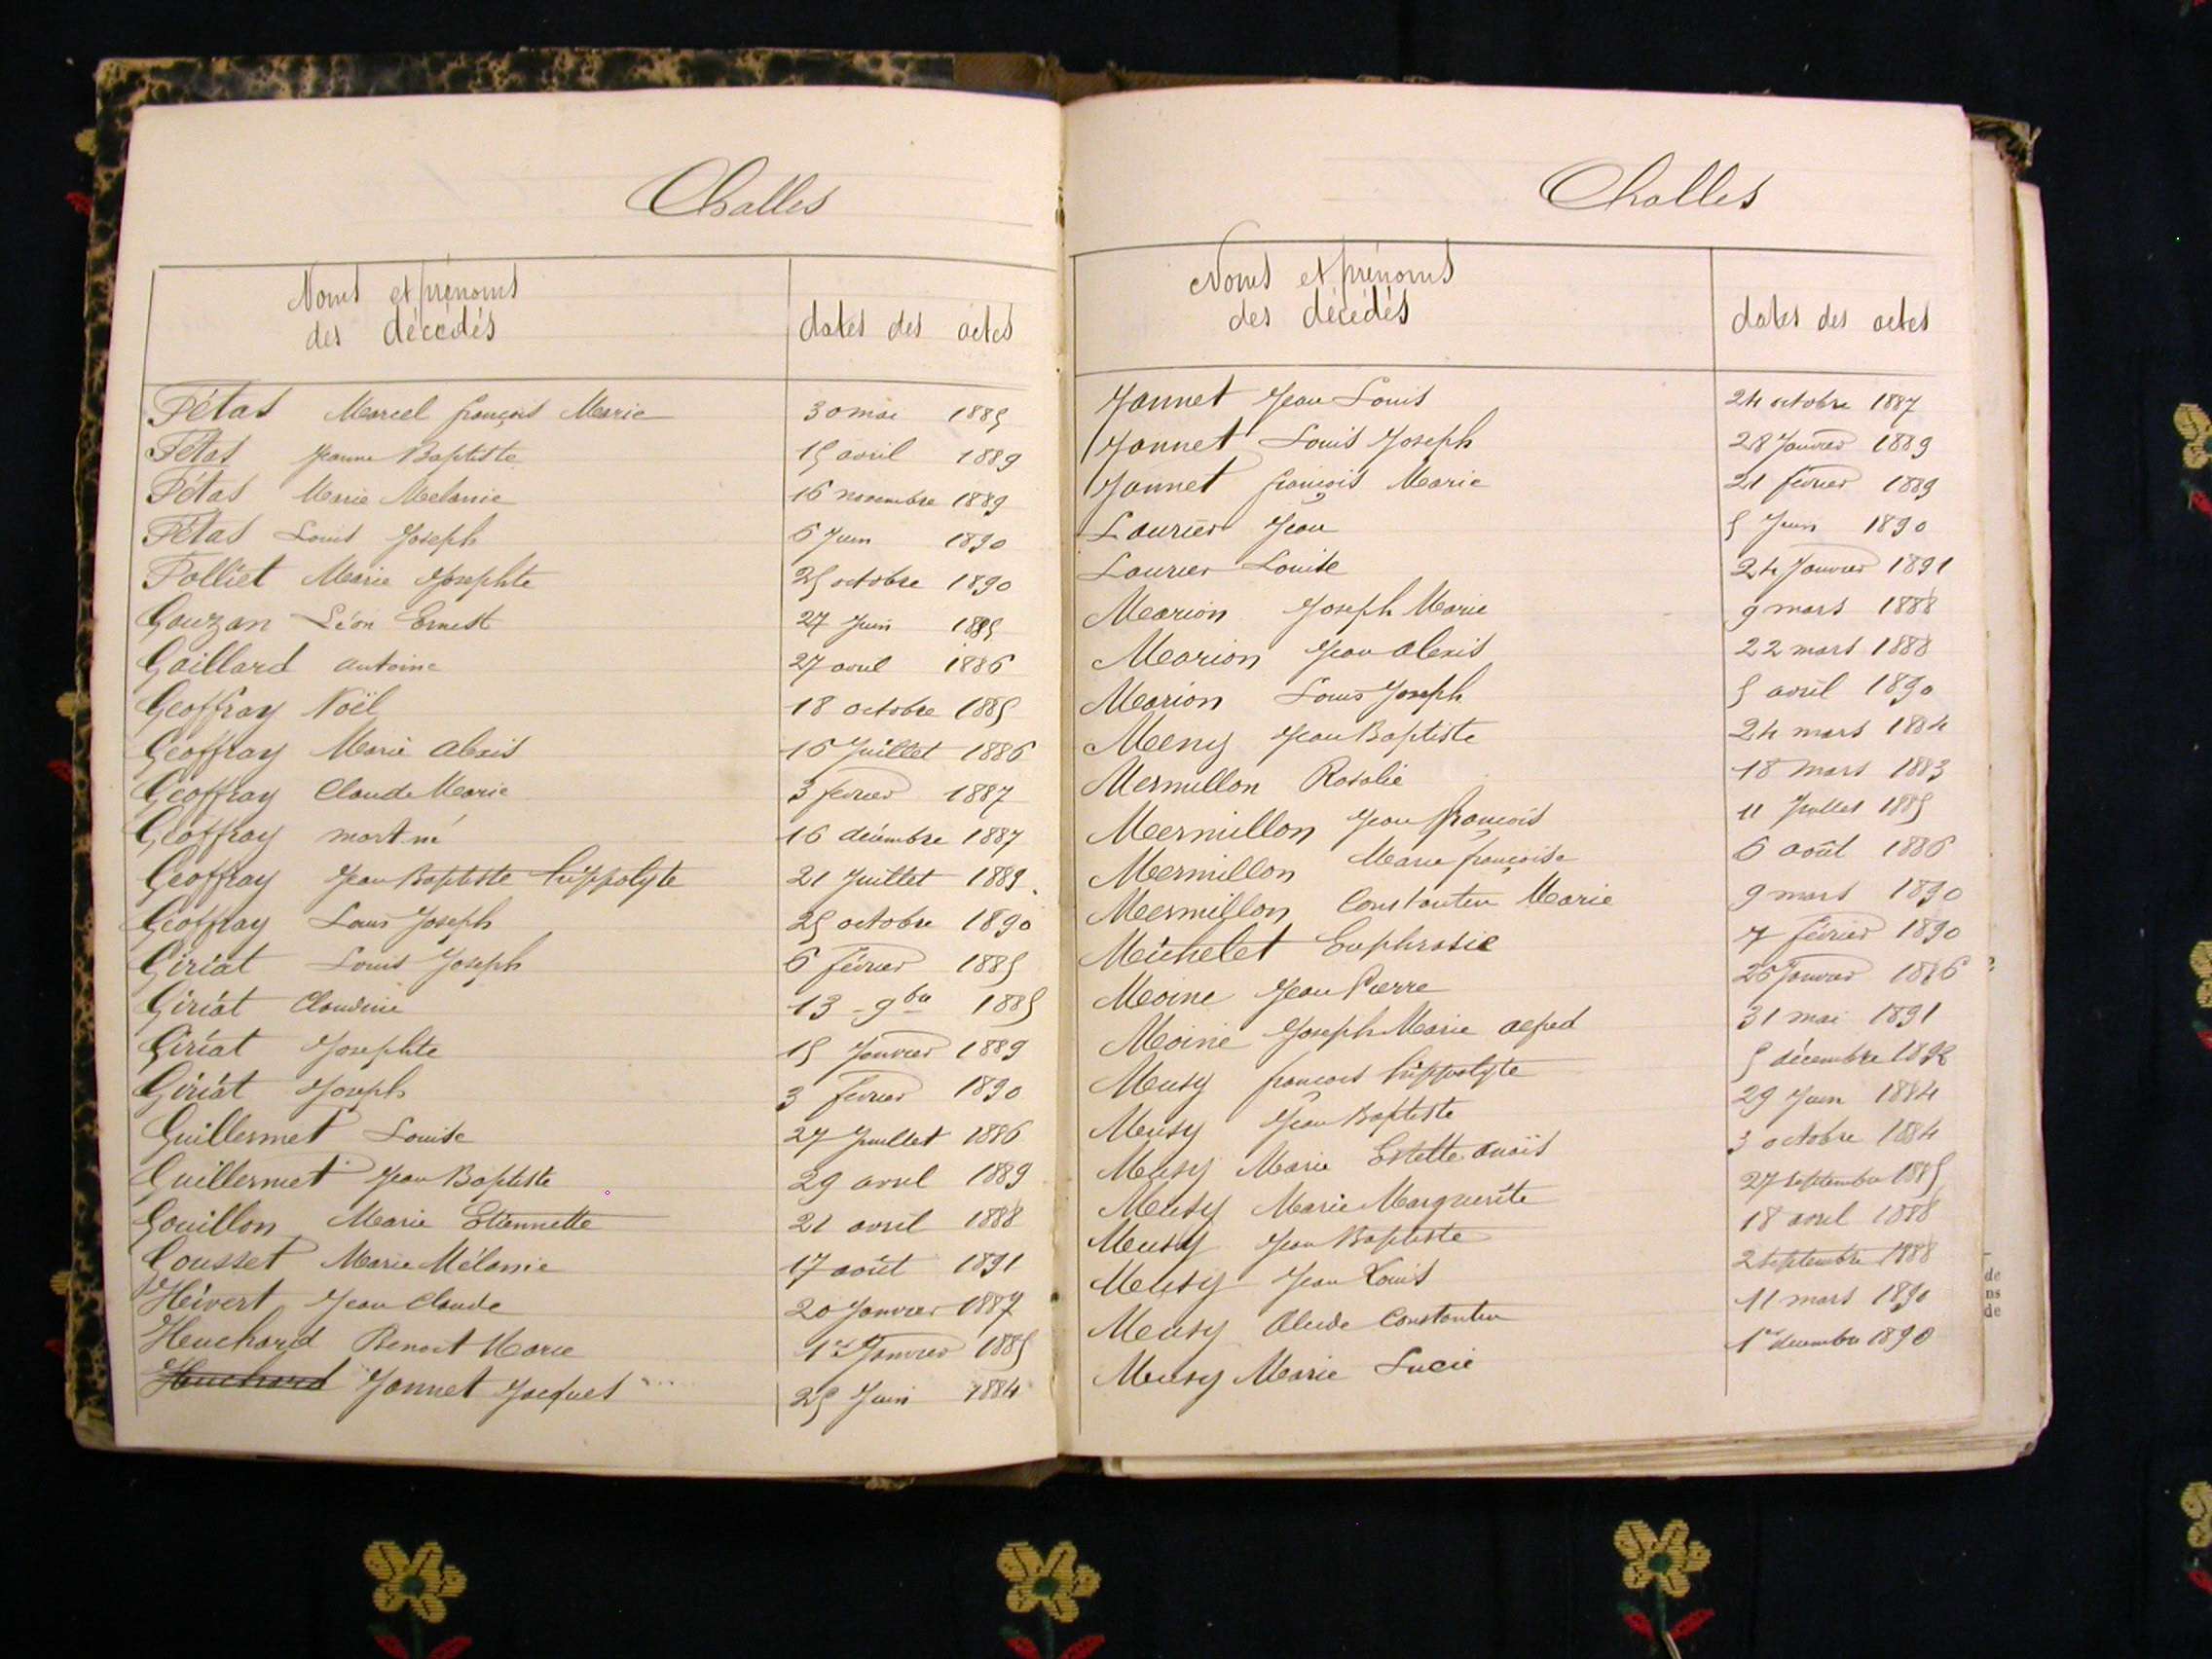 Challes
Noms et prénoms
des décédés
dates des actes
Fétas Marcel françois Marie 30 mai 1885
Fétas Jeanne Baptiste 15 avril 1889
Fétas Marie Melanie 16 novembre 1889
Fétas Louis Joseph 6 Juin 1890
Folliet Marie Josephte 25 octobre 1890
Gauzan Léon Ernest 27 Juin 1885
Gaillard antoine 27 avril 1886
Geoffray Noël 18 octobre 1885
Geoffray Marie alexis 16 Juillet 1886
Geoffray Claude Marie 3 fevrier 1887
Geoffray mort né 16 décembre 1887
Geoffray Jean Baptiste hippolyte 21 Juillet 1889
Geoffray Louis Joseph 25 octobre 1890
Giriat Louis Joseph 6 février 1885
Giriat Claudine 13 9bre 1885
Giriat Josephte 15 Janvier 1889
Giriat Joseph 3 fevrier 1890
Guillermet Louise 27 Juillet 1886
Guillermet Jean Baptiste 29 avril 1889
Gouillon Marie Etiennette 21 avril 1888
Cousset Marie Mélanie 17 août 1891
Hévert Jean Claude 20 Janvier 1887
Huchard Benoit Marie 1er Janvier 1885
Huchard Jonnet Jacques 25 Juin 1884
Challes
Noms et prénoms
des décédés
dates des actes
Jonnet Jean Louis 24 octobre 1887
Jonnet Louis Joseph 28 Janvier 1889
Jonnet françois Marie 21 février 1889
Laurier Jean 5 Juin 1890
Laurier Louise 24 Janvier 1891
Marion Joseph Marie 9 mars 1888
Marion Jean alexis 22 mars 1888
Marion Louis Joseph 5 avril 1890
Meny Jean Baptiste 24 mars 1884
Mermillon Rosalie 18 mars 1883
Mermillon Jean françois 11 Juillet 1885
Mermillon Marie françoise 6 août 1886
Mermillon Constantin Marie 9 mars 1890
Michelet Euphrasie 7 février 1890
Moine Jean Pierre 26 Janvier 1886
Moine Joseph Marie alfred 31 mai 1891
Musy francois hippolyte 5 décembre 1892
Musy Jean Baptiste 29 Juin 1884
Musy Marie Estelle anaïs 3 octobre 1884
Musy Marie Marguerite 27 septembre 1885
Musy Jean Baptiste 18 avril 1888
Musy Jean Louis 2 septembre 1888
Musy Constantin 11 mars 1890
Musy Marie Lucie 1er decembre 1890
de
ns
de